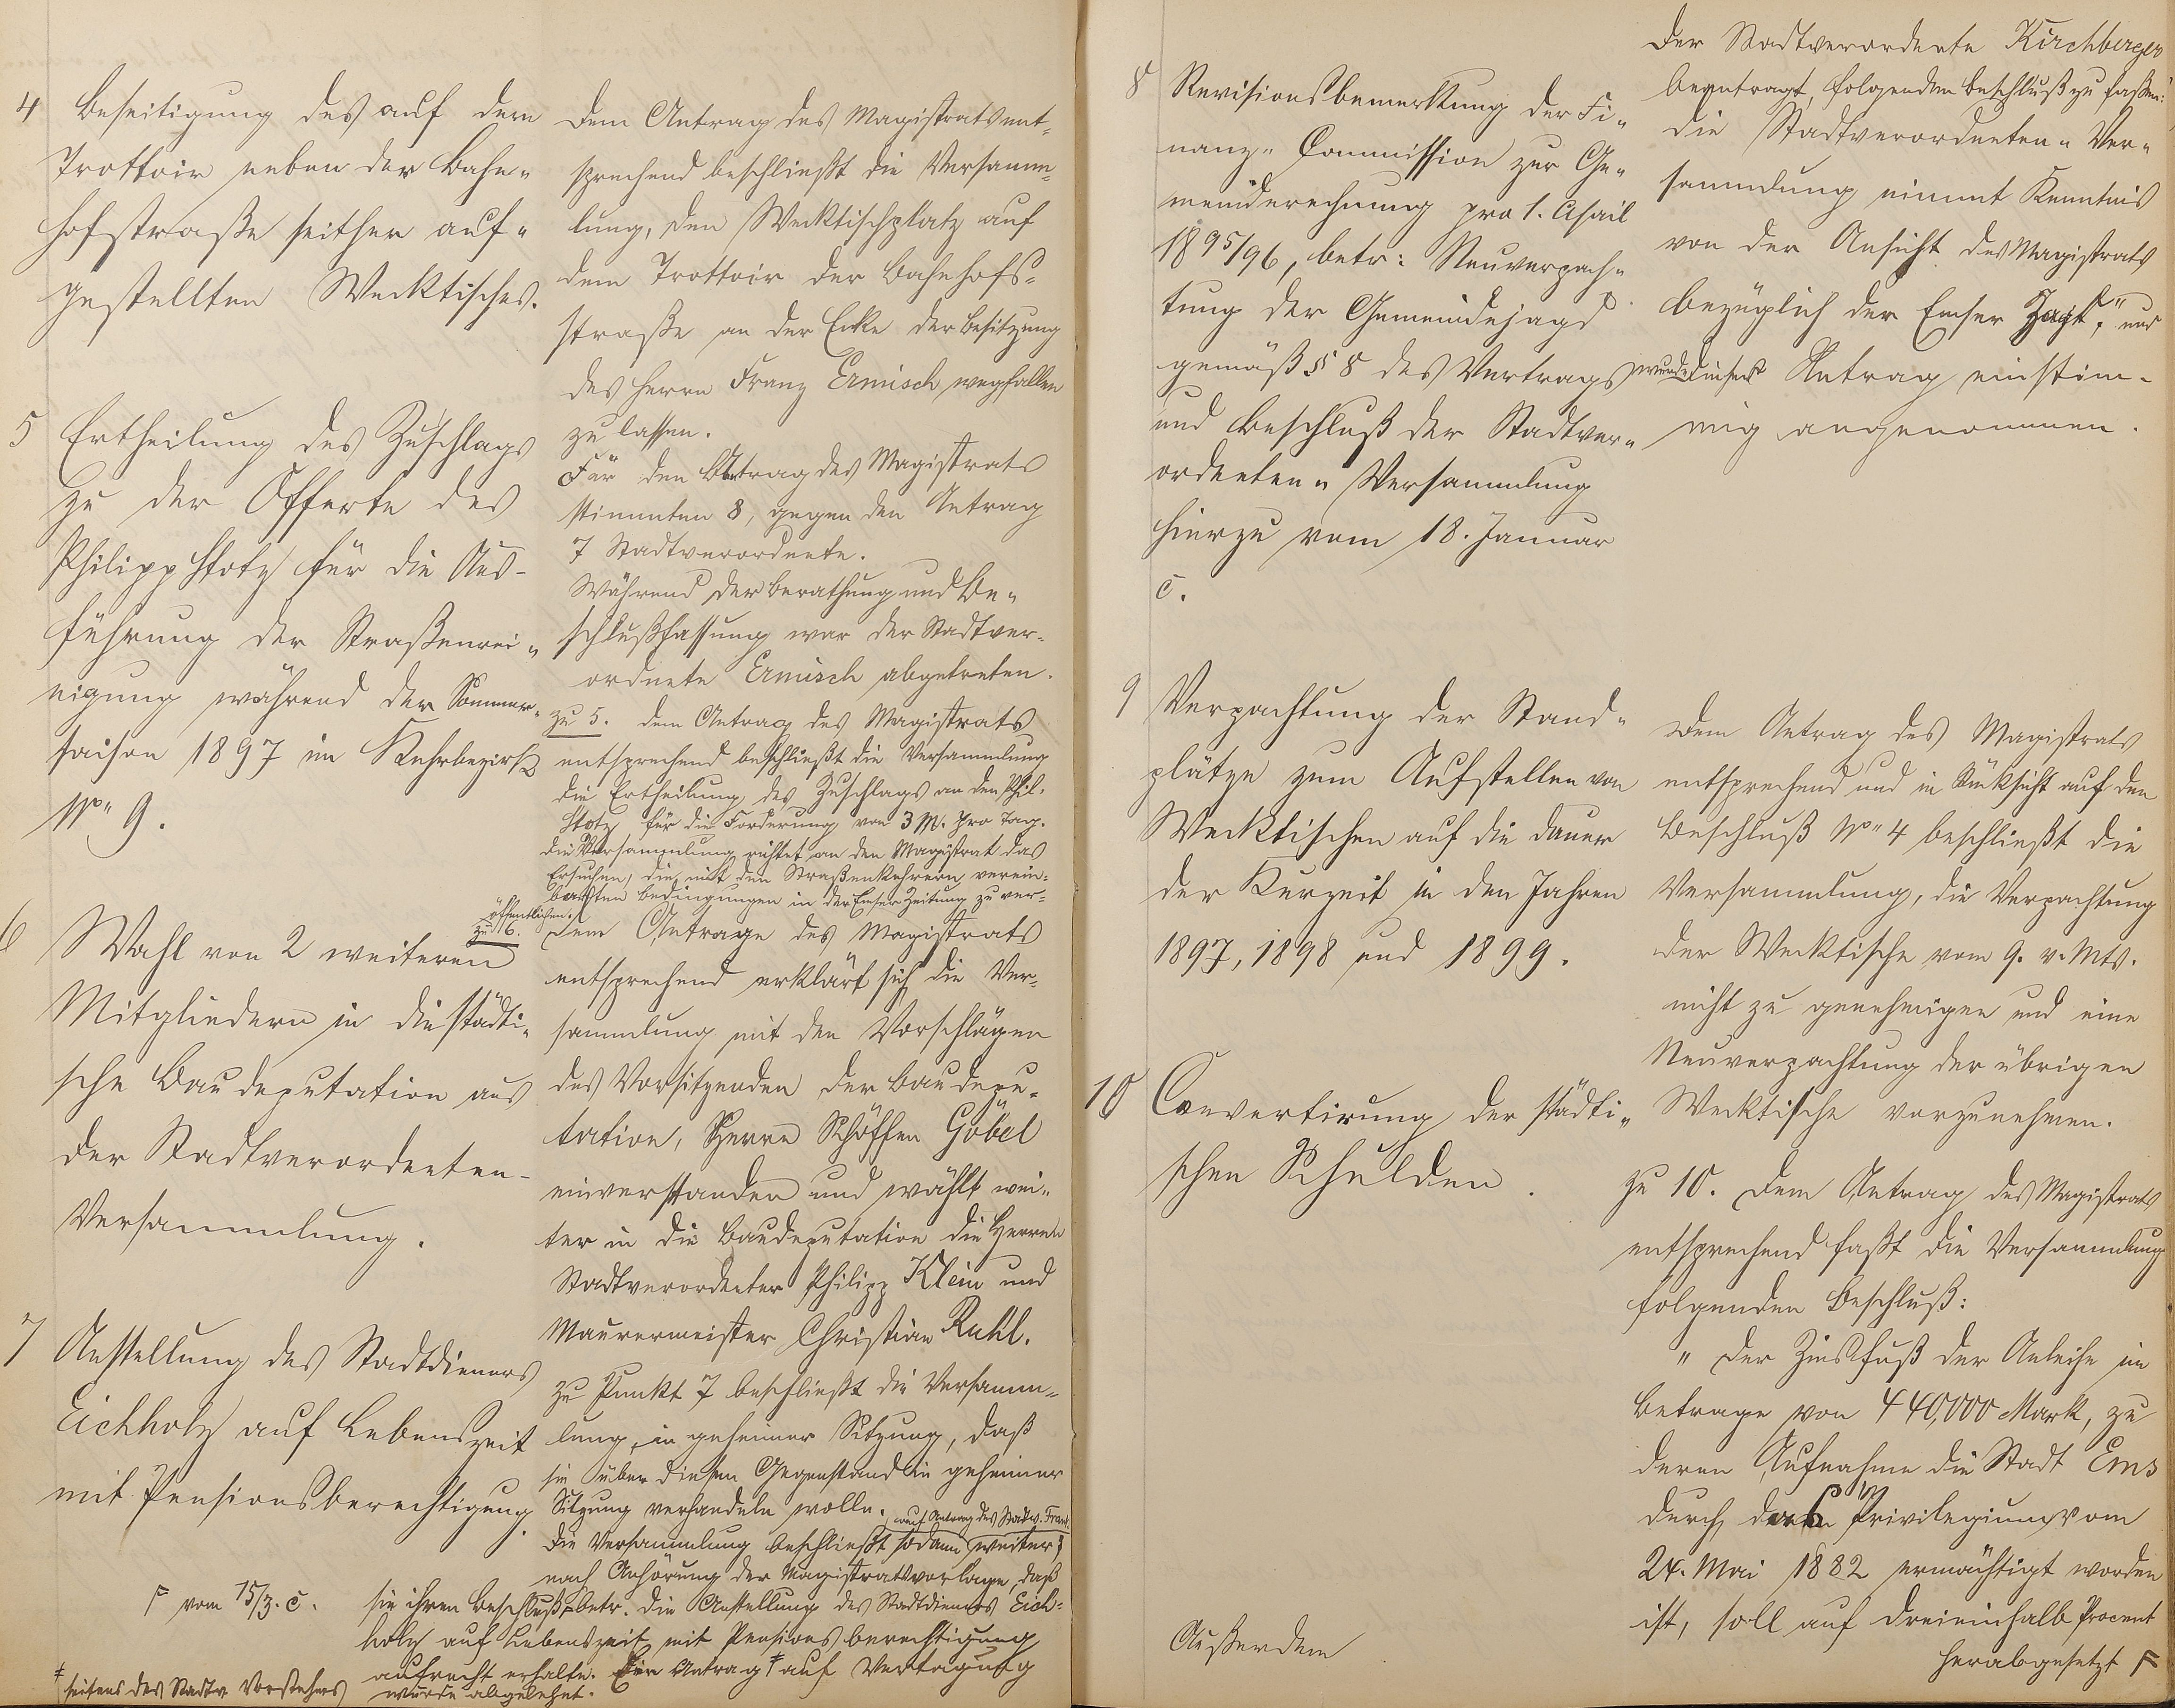 4 Beseitigung des auf dem
Trottoir neben der Bahn„
hofstraße seither auf„
gestellten Wecktisches.
5 Ertheilung des Zuschlags
zu der Offerte des
Philipp Stotz für die Aus-
führung der Straßenrei„
nigung während der Sommer„
saison 1897 im Kehrbezirk
No 9.
6 Wahl von 2 weiteren
Mitgliedern in die städti„
sche Baudeputation aus
der Stadtverordneten-
Versammlung.
7 Anstellung des Stadtdieners
Eichholz auf Lebenszeit
mit Pensionsberechtigung.
Dem Antrag des Magistrats ent„
sprechend beschließt die Versamm„
lung, den Wecktischplatz auf
dem Trottoir der Bahnhofs„
straße an der Ecke der Besitzung
des Herrn Franz Ermisch wegfallen
zu lassen.
Für den Antrag des Magistrats
stimmten 8, gegen den Antrag
7 Stadtverordnete.
Während der Berathung und Be„
schlußfassung war der Stadtver„
ordnete Ermisch abgetreten.
zu 5. Dem Antrag des Magistrats
entsprechend beschließt die Versammlung
die Ertheilung des Zuschlags an den Phil.
Stotz für die Forderung von 3 M. pro Tag.
Die Versammlung richtet an den Magistrat das
Ersuchen, die mit den Straßenkehrern verein„
barten Bedingungen in der Emser Zeitung zu ver„
öffentlichen.
zu 6. Dem Antrage des Magistrats
entsprechend erklärt sich die Ver„
sammlung mit den Vorschlägen
des Vorsitzenden der Baudepu„
tation, Herrn Schöffen Göbel
einverstanden und wählt wei„
ter in die Baudeputation die Herren
Stadtverordneter Philipp Klein und
Maurermeister Christian Ruhl.
zu Punkt 7 beschließt die Versamm„
lung, in geheimer Sitzung, daß
sie über diesen Gegenstand in geheimer
Sitzung verhandeln wolle.
auf Antrag des Stadtv. Frank
Die Versammlung beschließt sodann weiter,
nach Anhörung der Magistratsvorlage, daß
F vom 15/3. c. sie ihren Beschluß F betr. die Anstellung des Stadtdieners Eich„
holz auf Lebenszeit mit Pensionsberechtigung
aufrecht erhalte. Ein Antrag ǂ auf Vertagung
ǂ seitens des Stadtv. Vorstehers wurde abgelehnt.
8 Revisionsbemerkung der Fi„
nanz„ Commission zur Ge„
meinderechnung pro 1. April
1895/96, betr: Neuverpach„
tung der Gemeindejagd
gemäß § 8 des Vertrags
und Beschluß der Stadtver„
ordneten„ Versammlung
hierzu vom 18. Januar
c.
9 Verpachtung der Stand„
plätze zum Aufstellen von
Wecktischen auf die Dauer
der Kurzeit in den Jahren
1897, 1898 und 1899.
10 Convertirung der städti„
schen Schulden.
Außerdem
Der Stadtverordnete Kirchberger
beantragt, folgenden Beschluß zu fassen:
Die Stadtverordneten„ Ver„
sammlung nimmt Kenntnis
von der Ansicht des Magistrats
bezüglich der Emser Jagd", und
wurde dieser Antrag einstim-
mig angenommen.
Dem Antrag des Magistrats
entsprechend und in Rücksicht auf den
Beschluß No 4 beschließt die
Versammlung, die Verpachtung
der Wecktische vom 9. v. Mts.
nicht zu genehmigen und eine
Neuverpachtung der übrigen
Wecktische vorzunehmen.
zu 10. Dem Antrag des Magistrats
entsprechend faßt die Versammlung
folgenden Beschluß:
„ Der Zinsfuß der Anleihe im
Betrage von 440,000 Mark, zu
deren Aufnahme die Stadt Ems
durch das Privilegium vom
24. Mai 1882 ermächtigt worden
ist, soll auf dreieinhalb Procent
herabgesetzt F